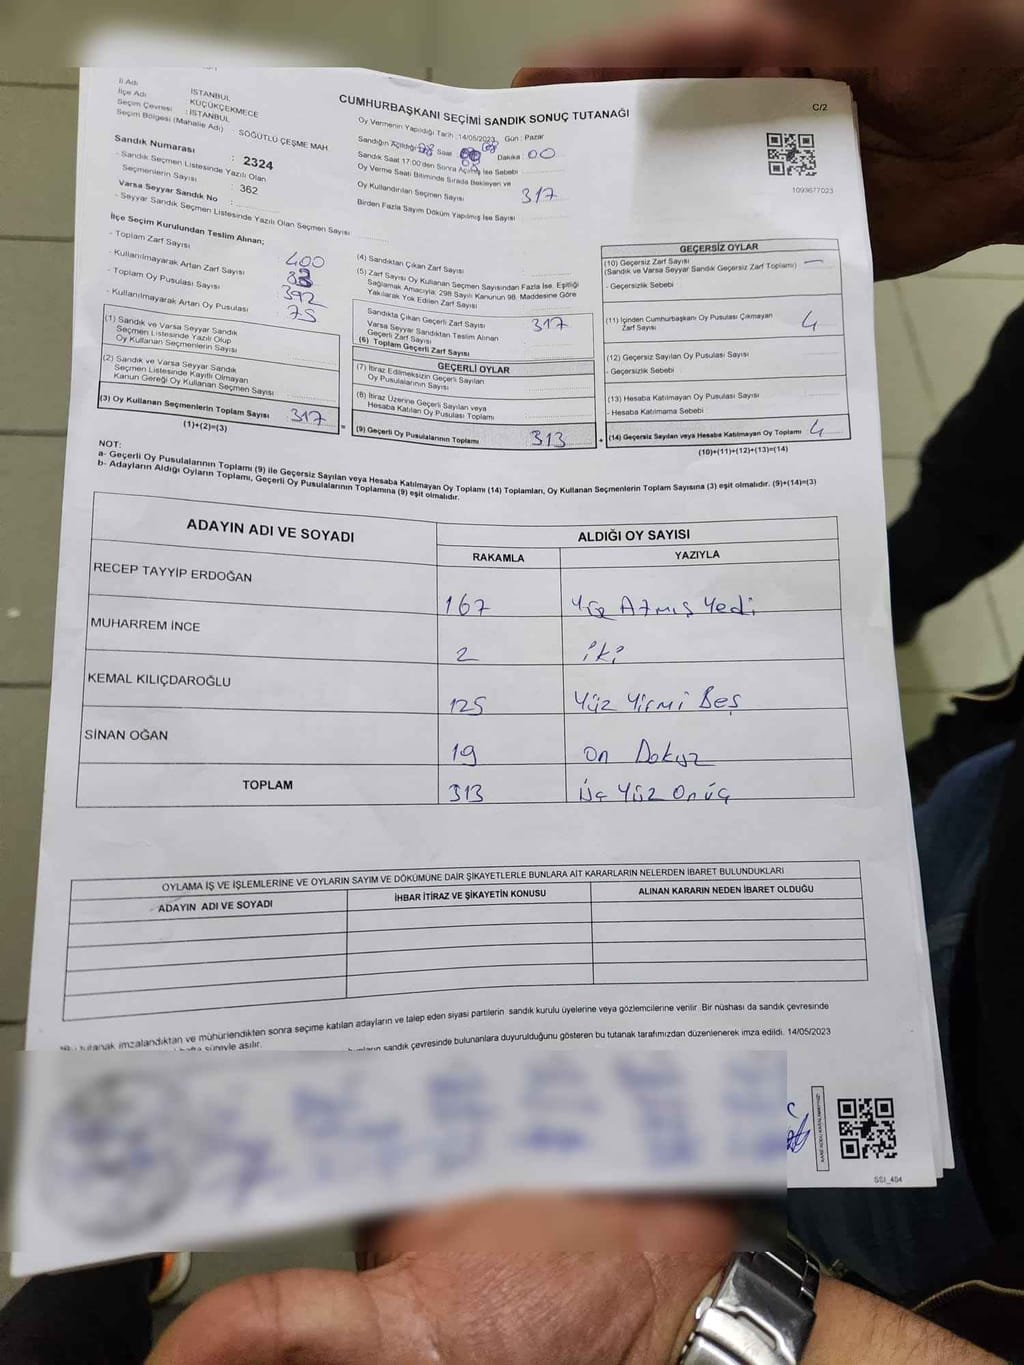 İl Adı
İlçe Adı
Seçim Çevresi
Seçim Bölgesi (Mahalle Adı)
İSTANBUL
KÜÇÜKÇEKMECE
: İSTANBUL
: SOĞÜTLÜ ÇEŞME MAH
CUMHURBAŞKANI SEÇİMİ SANDIK SONUÇ TUTANAĞI
C/2
Oy Vermenin Yapıldığı Tarih : 14/05/2023 Gün : Pazar
Sandığın Açıldığı Saat Dakika 00
Sandık Saat 17:00'den Sonra Açılmış İse Sebebi
Oy Verme Saati Bitiminde Sırada Bekleyen ve
Oy Kullandırılan Seçmen Sayısı 317
Birden Fazla Sayım Döküm Yapılmış İse Sayısı
1093677023
Sandık Numarası : 2324
- Sandık Seçmen Listesinde Yazılı Olan
Seçmenlerin Sayısı : 362
Varsa Seyyar Sandık No :
- Seyyar Sandık Seçmen Listesinde Yazılı Olan Seçmen Sayısı
İlçe Seçim Kurulundan Teslim Alınan;
- Toplam Zarf Sayısı 400
- Kullanılmayarak Artan Zarf Sayısı
- Toplam Oy Pusulası Sayısı 392
- Kullanılmayarak Artan Oy Pusulası 75
(1) Sandık ve Varsa Seyyar Sandık
Seçmen Listesinde Yazılı Olup
Oy Kullanan Seçmenlerin Sayısı
(2) Sandık ve Varsa Seyyar Sandık
Seçmen Listesinde Kayıtlı Olmayan
Kanun Gereği Oy Kullanan Seçmen Sayısı
(3) Oy Kullanan Seçmenlerin Toplam Sayısı 317
(1)+(2)=(3)
(4) Sandıktan Çıkan Zarf Sayısı
(5) Zarf Sayısı Oy Kullanan Seçmen Sayısından Fazla İse, Eşitliği
Sağlamak Amacıyla; 298 Sayılı Kanunun 98. Maddesine Göre
Yakılarak Yok Edilen Zarf Sayısı
Sandıkta Çıkan Geçerli Zarf Sayısı 317
Varsa Seyyar Sandıktan Teslim Alınan
Geçerli Zarf Sayısı
(6) Toplam Geçerli Zarf Sayısı
GEÇERLİ OYLAR
(7) İtiraz Edilmeksizin Geçerli Sayılan
Oy Pusulalarının Sayısı
(8) İtiraz Üzerine Geçerli Sayılan veya
Hesaba Katılan Oy Pusulası Toplamı
= (9) Geçerli Oy Pusulalarının Toplamı 313
GEÇERSİZ OYLAR
(10) Geçersiz Zarf Sayısı —
(Sandık ve Varsa Seyyar Sandık Geçersiz Zarf Toplamı)
- Geçersizlik Sebebi
(11) İçinden Cumhurbaşkanı Oy Pusulası Çıkmayan
Zarf Sayısı 4
(12) Geçersiz Sayılan Oy Pusulası Sayısı
- Geçersizlik Sebebi
(13) Hesaba Katılmayan Oy Pusulası Sayısı
- Hesaba Katılmama Sebebi
+ (14) Geçersiz Sayılan veya Hesaba Katılmayan Oy Toplamı 4
(10)+(11)+(12)+(13)=(14)
NOT:
a- Geçerli Oy Pusulalarının Toplamı (9) ile Geçersiz Sayılan veya Hesaba Katılmayan Oy Toplamı (14) Toplamları, Oy Kullanan Seçmenlerin Toplam Sayısına (3) eşit olmalıdır. (9)+(14)=(3)
b- Adayların Aldığı Oyların Toplamı, Geçerli Oy Pusulalarının Toplamına (9) eşit olmalıdır.
ADAYIN ADI VE SOYADI ALDIĞI OY SAYISI
RAKAMLA YAZIYLA
RECEP TAYYİP ERDOĞAN 167 Yüz Atmış Yedi
MUHARREM İNCE 2 iki
KEMAL KILIÇDAROĞLU 125 Yüz Yirmi Beş
SİNAN OĞAN 19 On Dokuz
TOPLAM 313 Üç Yüz Onüç
OYLAMA İŞ VE İŞLEMLERİNE VE OYLARIN SAYIM VE DÖKÜMÜNE DAİR ŞİKAYETLERLE BUNLARA AİT KARARLARIN NELERDEN İBARET BULUNDUKLARI
ADAYIN ADI VE SOYADI İHBAR İTİRAZ VE ŞİKAYETİN KONUSU ALINAN KARARIN NEDEN İBARET OLDUĞU
tutanak imzalandıktan ve mühürlendikten sonra seçime katılan adayların ve talep eden siyasi partilerin sandık kurulu üyelerine veya gözlemcilerine verilir. Bir nüshası da sandık çevresinde
süreyle asılır.
sandık çevresinde bulunanlara duyurulduğunu gösteren bu tutanak tarafımızdan düzenlenerek imza edildi. 14/05/2023
SSI_484